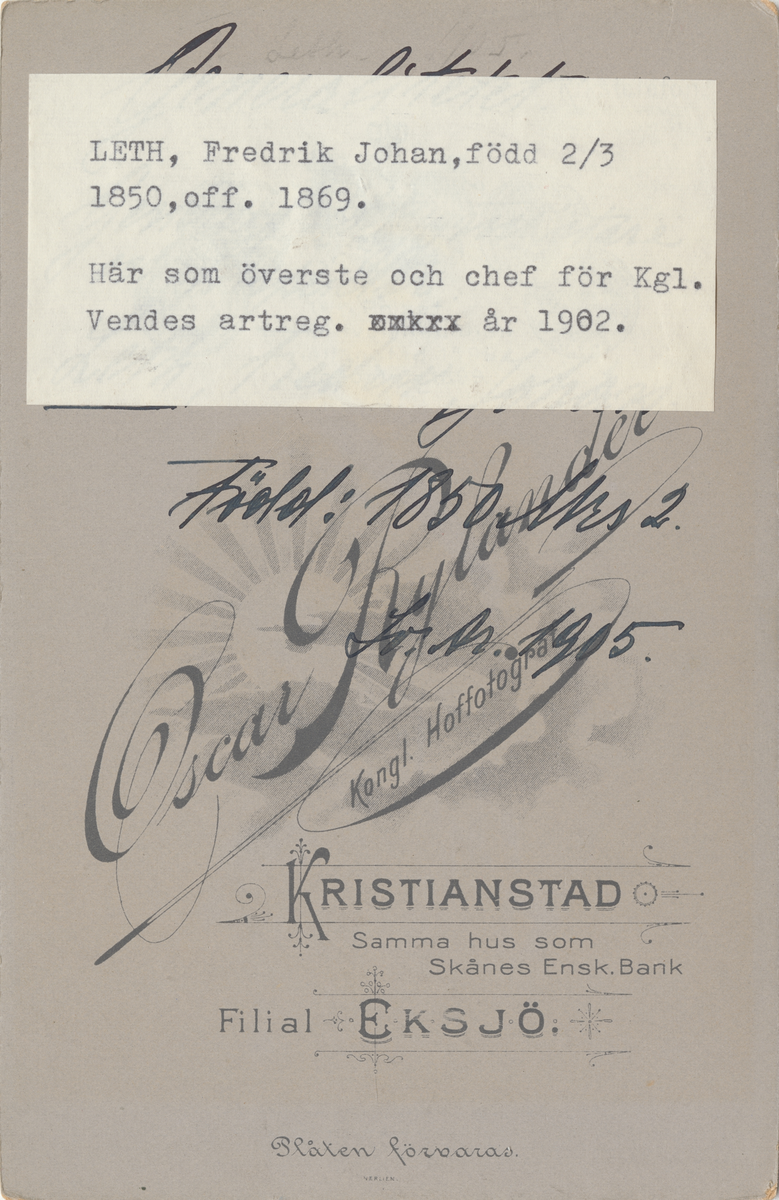 LETH, Fredrik Johan,född 2/3
1850,off. 1869.
Här som överste och chef för Kgl.
Vendes artreg. år 1902.
Född: 1850 2.
1905.
Oscar Rylander
Kongl. Hoffotograf
KRISTIANSTAD
Samma hus som
Skånes Ensk. Bank
Filial EKSJÖ.
Plåten förvaras.